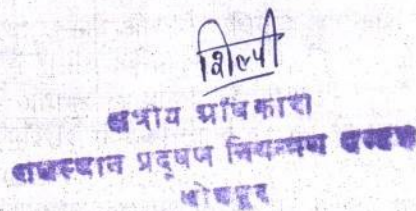 शिल्पी
क्षेत्रीय अधिकारी
राजस्थान प्रदूषण नियन्त्रण मण्डल
जोधपुर